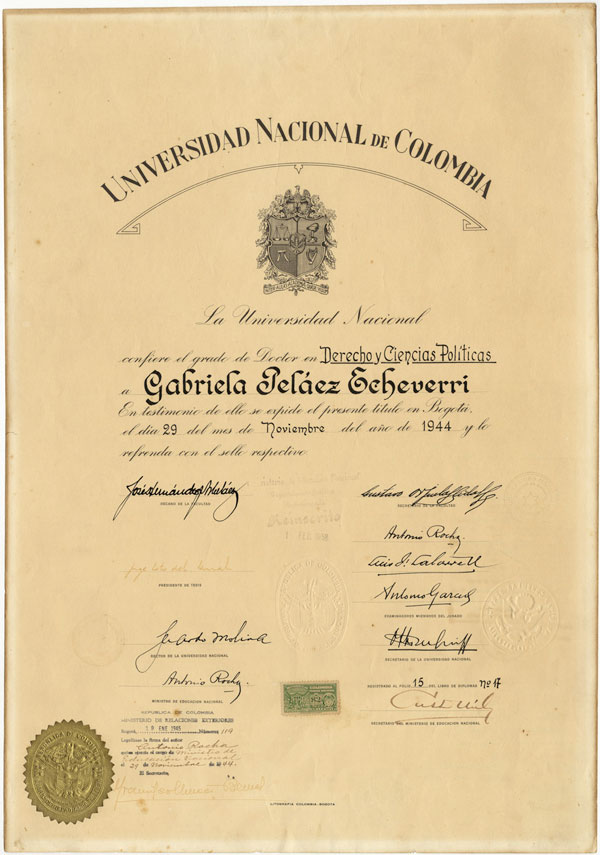 UNIVERSIDAD NACIONAL DE COLOMBIA
La Universidad Nacional
confiere el grado de Doctor en Derecho y Ciencias Políticas
a Gabriela Peláez Echeverri
En testimonio de ello se expide el presente título en Bogotá,
el día 29 del mes de Noviembre del año de 1944 y lo
refrenda con el sello respectivo
DECANO DE LA FACULTAD
SECRETARIO DE LA FACULTAD
Antonio Rocha
PRESIDENTE DE TESIS
Antonio García
EXAMINADORES MIEMBROS DEL JURADO
Gerardo Molina
RECTOR DE LA UNIVERSIDAD NACIONAL
SECRETARIO DE LA UNIVERSIDAD NACIONAL
Antonio Rocha
MINISTRO DE EDUCACION NACIONAL
REGISTRADO AL FOLIO 15 DEL LIBRO DE DIPLOMAS Nº
SECRETARIO DEL MINISTERIO DE EDUCACION NACIONAL
REPUBLICA DE COLOMBIA
MINISTERIO DE RELACIONES EXTERIORES
Bogotá, ENE 1965 Número 119
Legalízase la firma del señor
Antonio Rocha
el cargo de Ministro de
Educación Nacional
el 29 de Noviembre de 1944.
El Secretario,
LITOGRAFIA COLOMBIA-BOGOTA